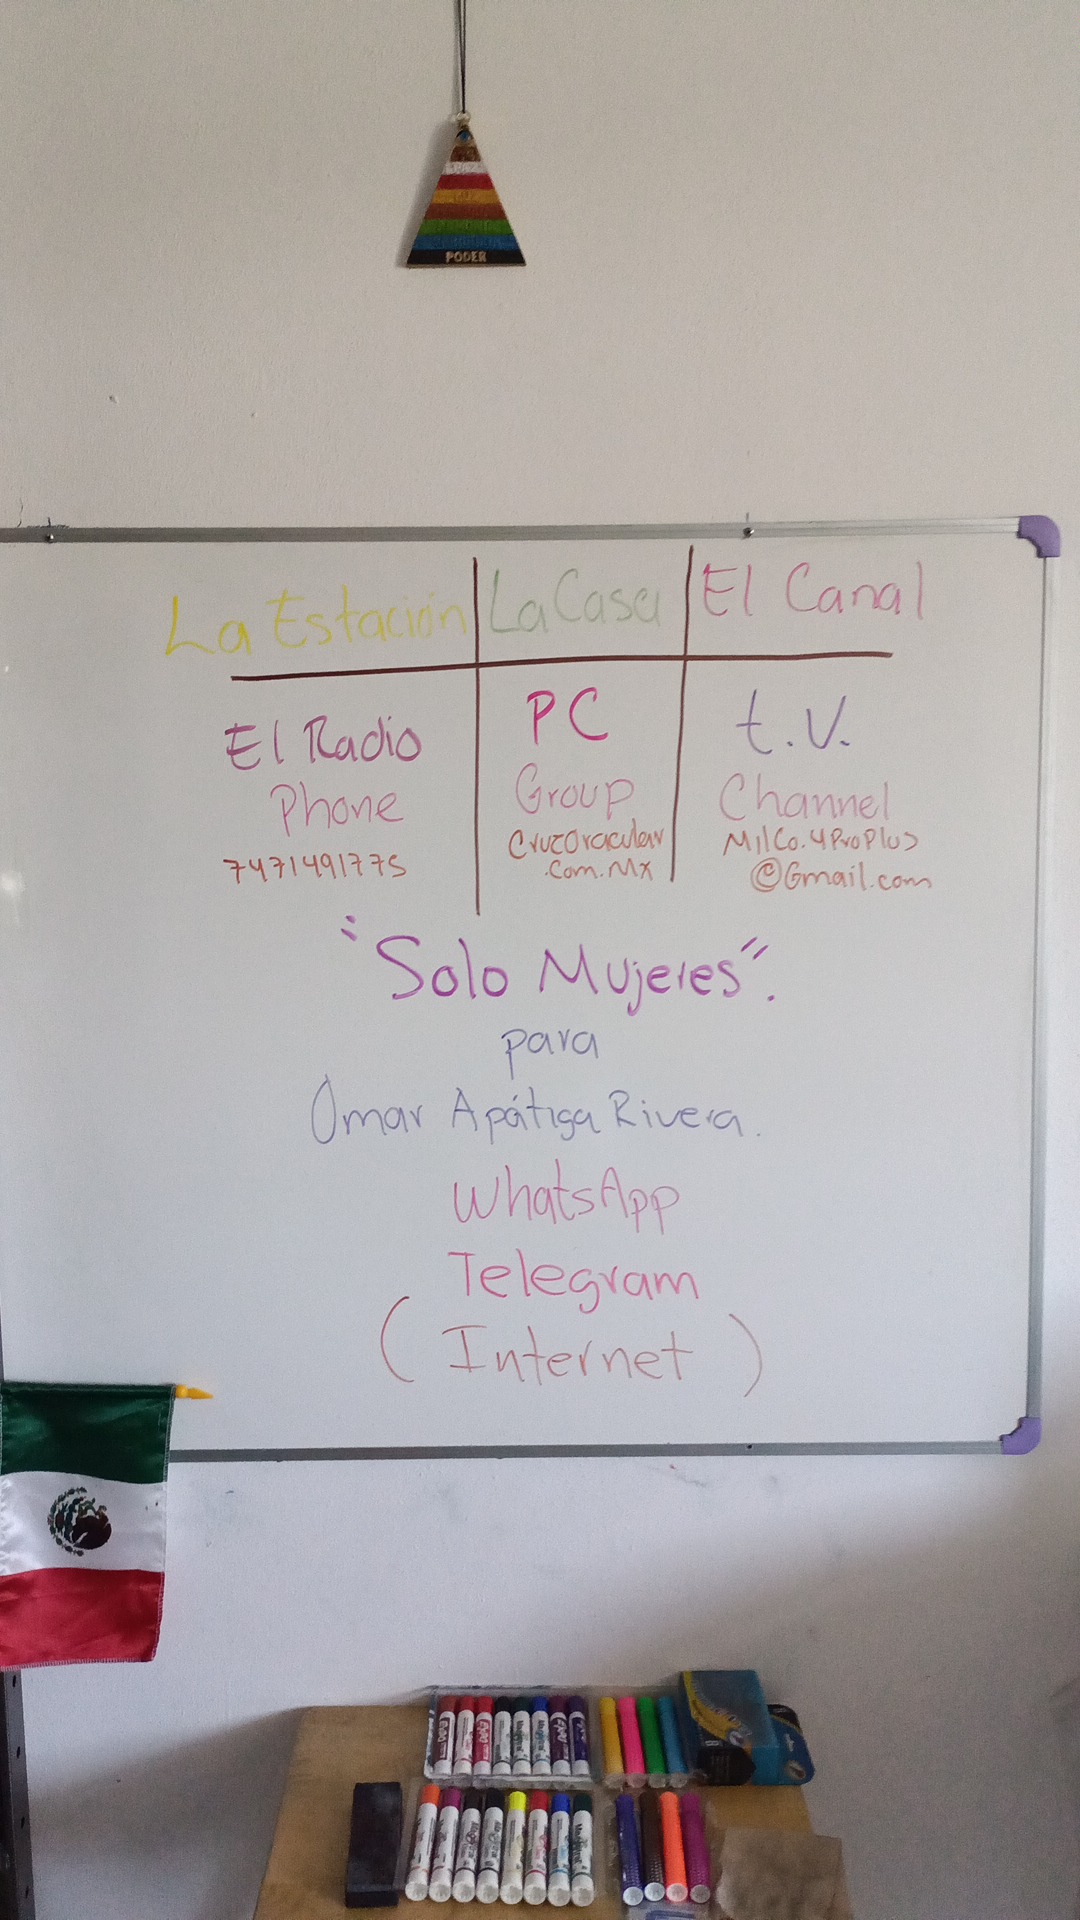 PODER
La Estación La Casa El Canal
El Radio PC t.V.
Phone Group Channel
7471491775 CruzOracular MilCo.4ProPlus
.com.Mx @Gmail.com
"Solo Mujeres".
para
Omar Apátiga Rivera.
WhatsApp
Telegram
( Internet )